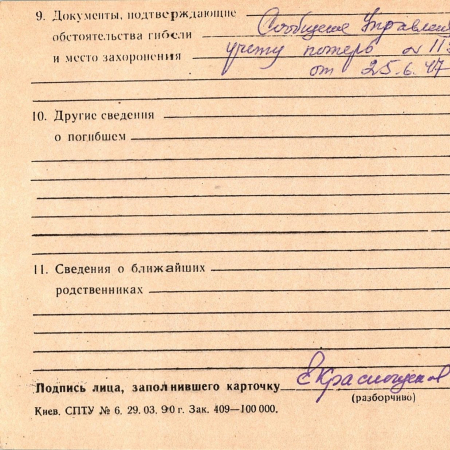 9. Документы, подтверждающие Сообщение Управлени
обстоятельства гибели учету потерь №
и место захоронения от 25.6.47
10. Другие сведения
о погибшем
11. Сведения о ближайших
родственниках
Подпись лица, заполнившего карточку
(разборчиво)
Киев. СПТУ № 6. 29. 03. 90 г. Зак. 409—100 000.